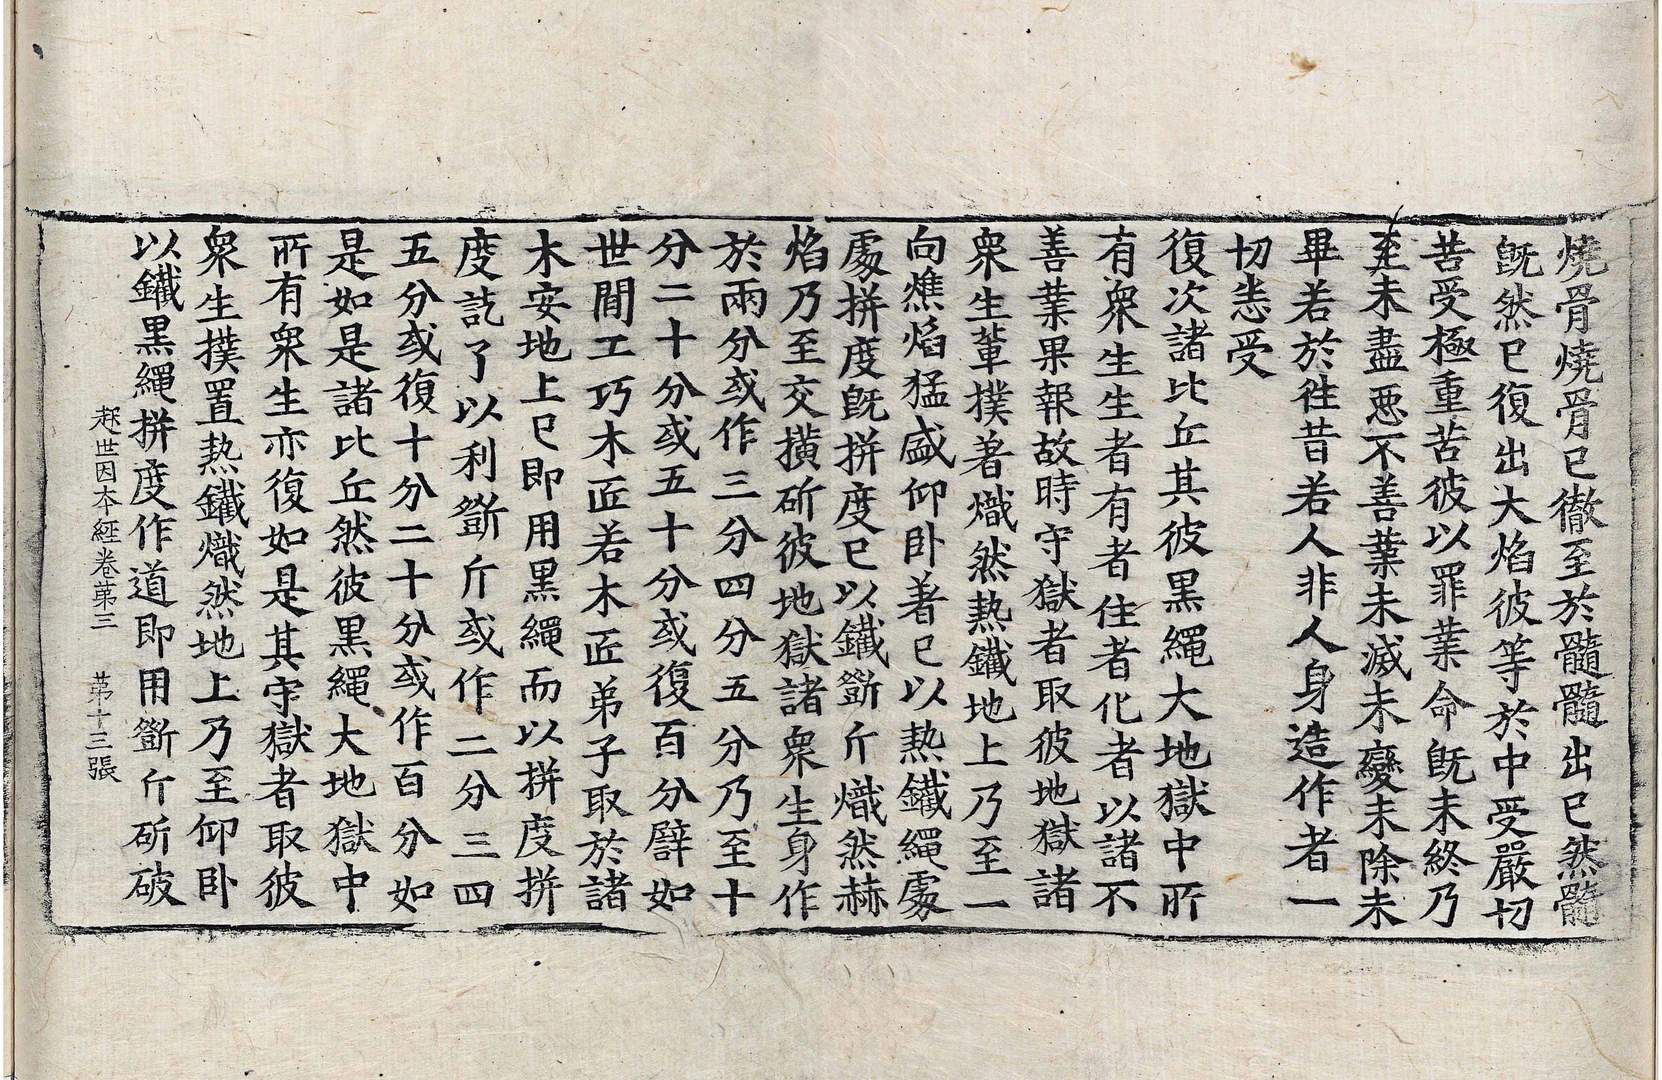 燒骨燒骨已徹至於髓髓出已然髓
旣然已復出大焰彼等於中受嚴切
苦受極重苦彼以罪業命旣未終乃
至未盡惡不善業未滅未變未除未
畢若於徃昔若人非人身造作者一
切恙受
復次諸比丘其彼黑繩大地獄中所
有衆生生者有者住者化者以諸不
善業果報故時守獄者取彼地獄諸
衆生輩撲著熾然熱鐵地上乃至一
向燋焰猛盛仰卧著已以熱鐵繩處
處拼度旣拼度已以鐵斵斤熾然赫
焰乃至交撗斫彼地獄諸衆生身作
於兩分或作三分四分五分乃至十
分二十分或五十分或復百分譬如
世間工巧木匠若木匠弟子取於諸
木安地上已即用黑繩而以拼度拼
度訖了以利斵斤或作二分三四
五分或復十分二十分或作百分如
是如是諸比丘然彼黑繩大地獄中
所有衆生亦復如是其守獄者取彼
衆生撲置熱鐵熾然地上乃至仰卧
以鐵黑繩拼度作道即用斵斤斫破
起世因本經卷第三 第十三張